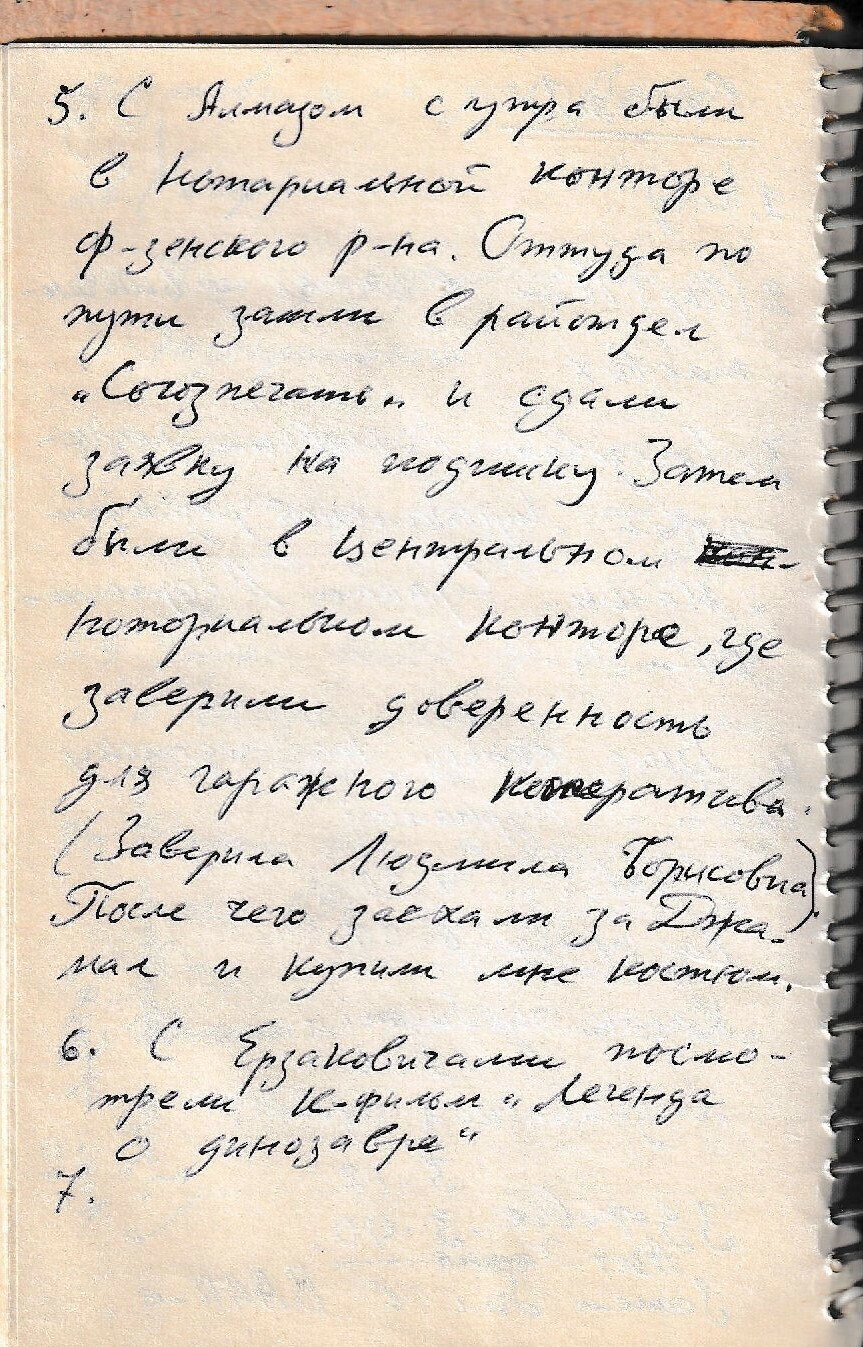 5. С Алмазом с утра были
в нотариальной конторе
ф-зенского р-на. Оттуда по
пути зашли в райотдел
„Союзпечать„ и сдали
заявку на подписку. Затем
были в Центральном
ноториальном конторе, где
заверили доверенность
для гаражного кооператива.
(Заверила Людмила Борисовна)
После чего заехали за Джа-
мал и купили мне костюм.
6. С Ерзаковичами посмо-
трели к-фильм „Легенда
о динозавре“
7.